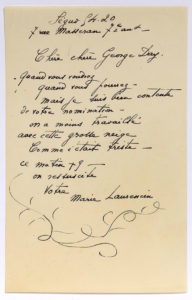 Ségur 54.20
7 rue Masseran 7è art
Chère chère George Day.
quand vous voudrez
quand vous pouvez
mais je suis bien contente
de votre nomination
on a moins travaillé
avec cette grosse neige
Comme c'était triste
ce matin + 9
on ressuscite
Votre
Marie Laurencin